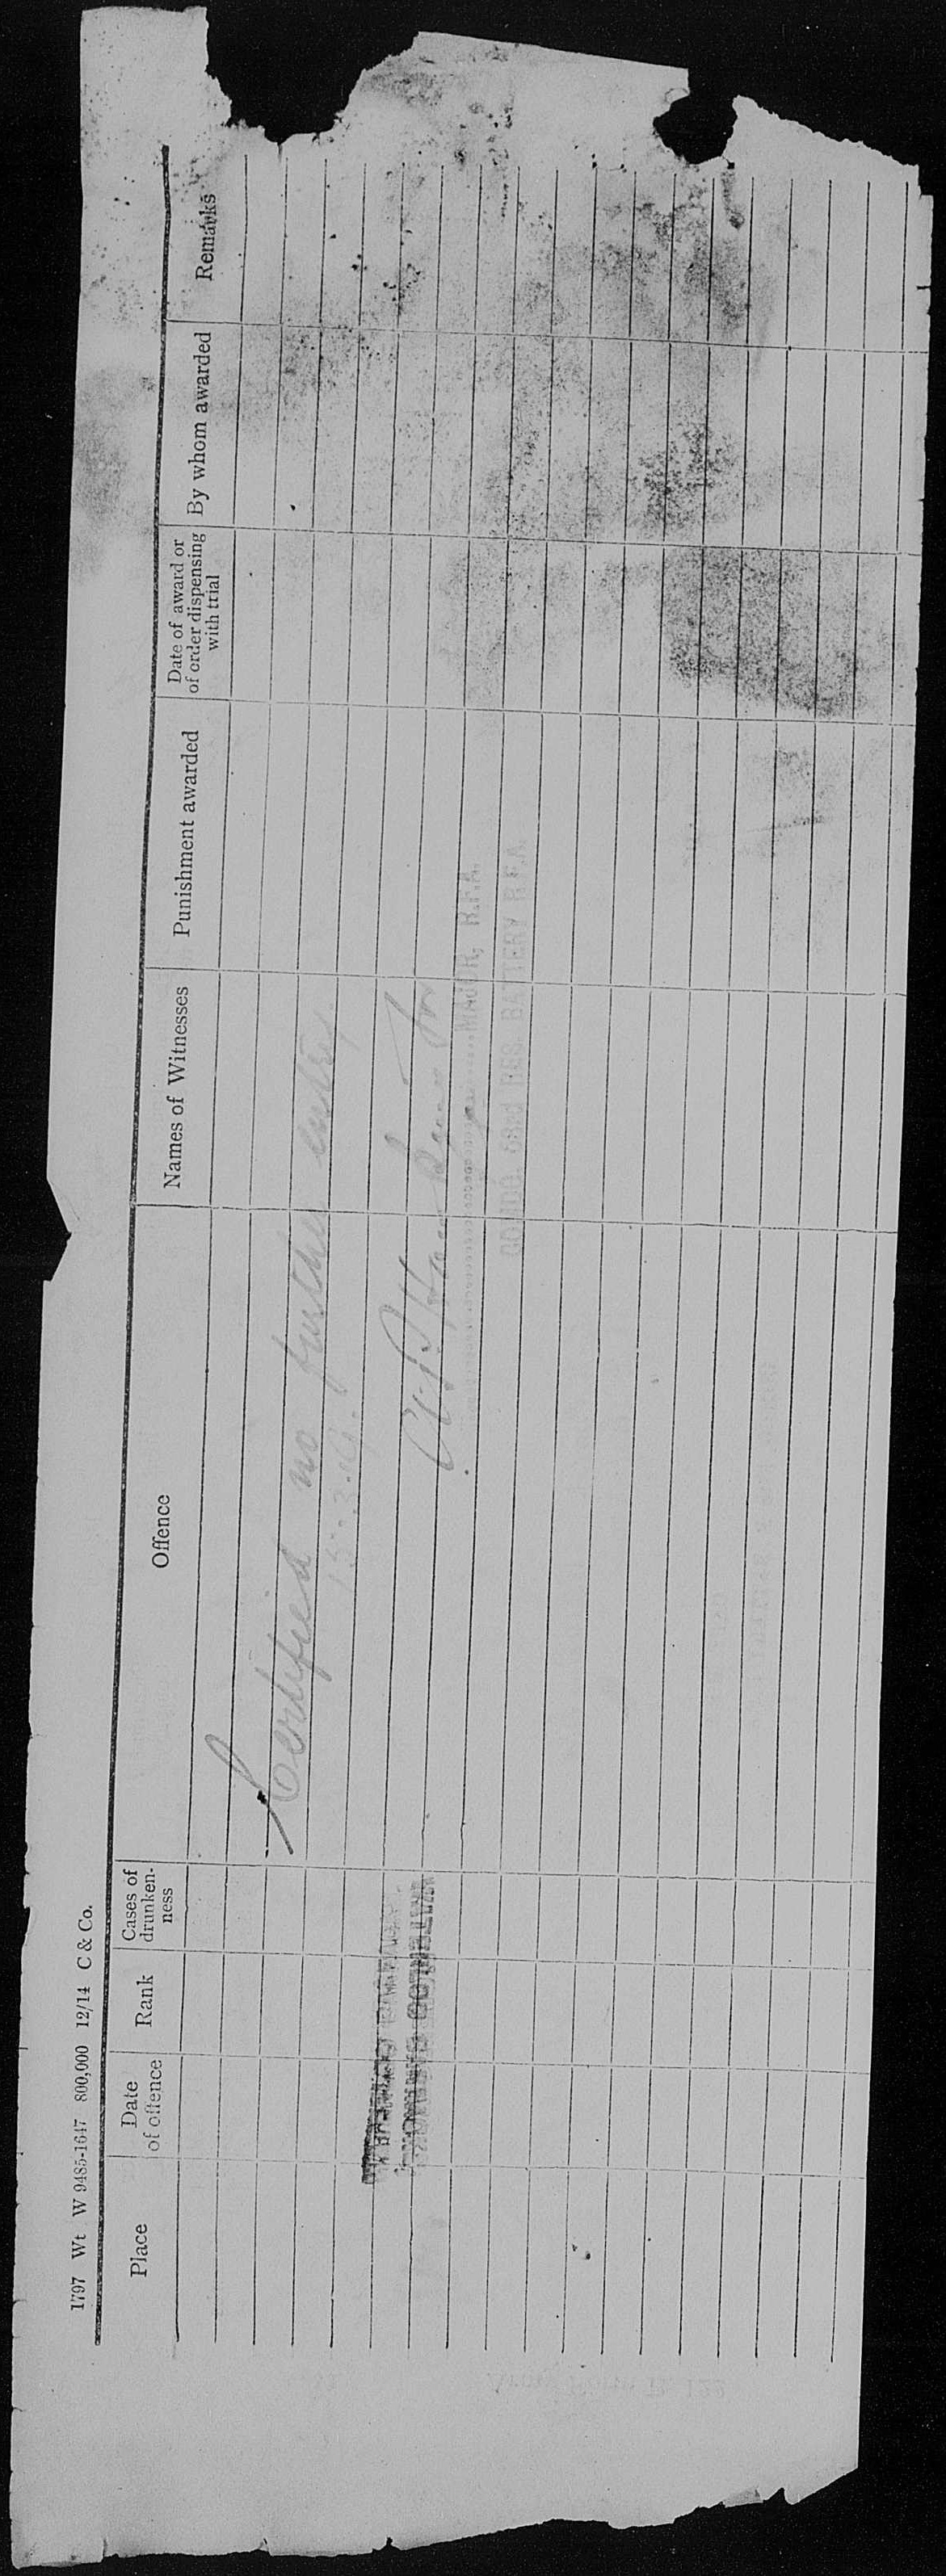 1797 Wt W 9485-1647 800,000 12/14 C & Co.
Place
Date
of offence
Rank
Cases of
drunken-
ness
Offence
Names of Witnesses
Punishment awarded
Date of award or
of order dispensing
with trial
By whom awarded
Remarks
Certified no further entry.
MAJOR, R.F.A.
RES. BATTERY R.F.A.